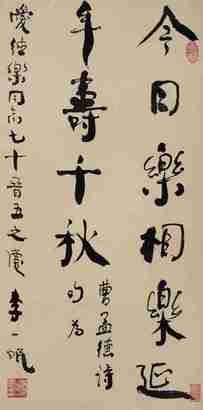 今日樂相樂延
年壽千秋
曹孟德詩
句為
愛德樂同志七十晉五之慶 李一氓